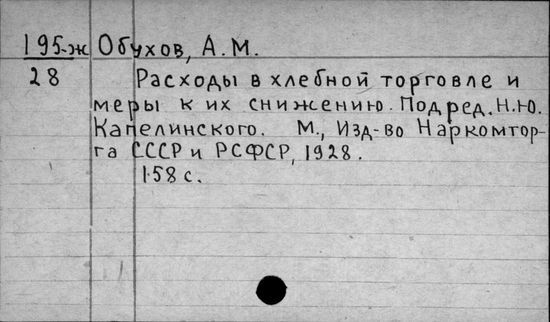 195-ж Обухов, А.М.
28 Расходы в хлебной торговле и
меры к их снижению. Под ред. Н.Ю.
Капелинского. М., Изд-во Наркомтор-
га СССР и РСФСР, 1928.
158 с.